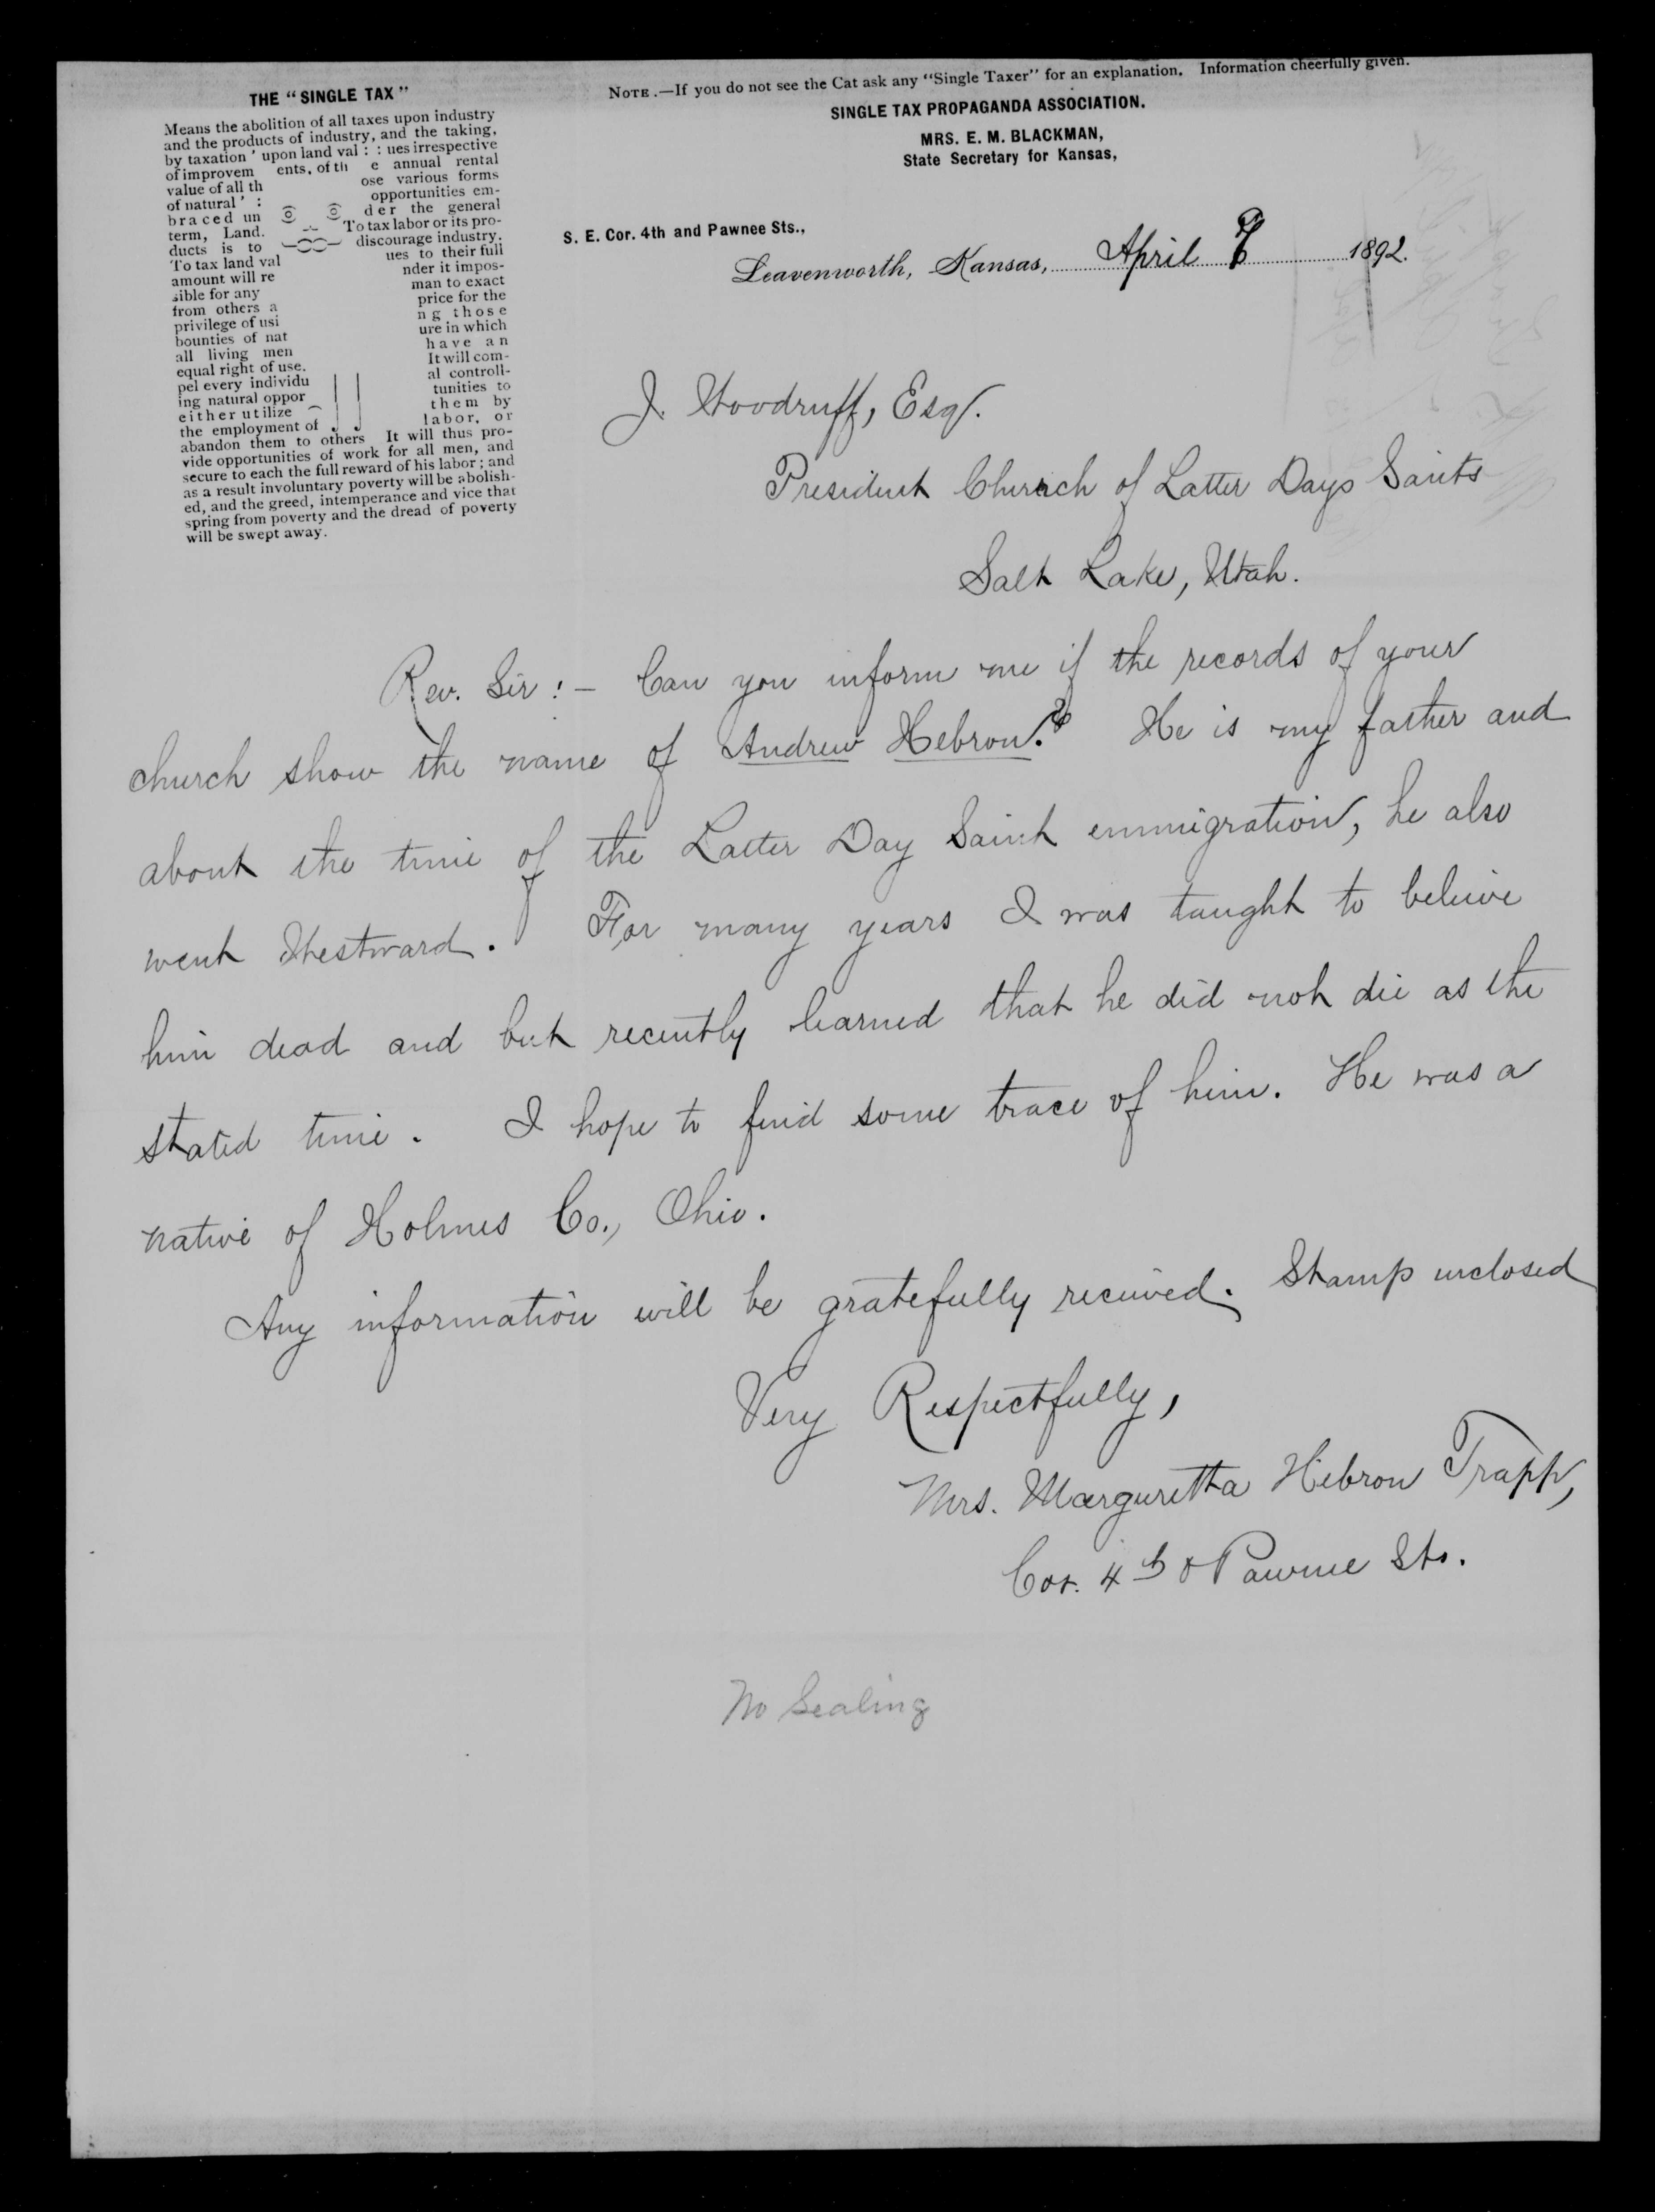 THE "SINGLE TAX"
Means the abolition of all taxes upon industry
and the products of industry, and the taking,
by taxation ' upon land val : : ues irrespective
of improvem ents, of th e annual rental
value of all th ose various forms
of natural ' : opportunities em-
braced un der the general
term, Land. To tax labor or its pro-
ducts is to discourage industry.
To tax land val ues to their full
amount will re nder it impos-
sible for any man to exact
from others a price for the
privilege of usi ng those
bounties of nat ure in which
all living men have an
equal right of use. It will com-
pel every individu al controll-
ing natural oppor tunities to
either utilize them by
the employment of labor, or
abandon them to others It will thus pro-
vide opportunities of work for all men, and
secure to each the full reward of his labor ; and
as a result involuntary poverty will be abolish-
ed, and the greed, intemperance and vice that
spring from poverty and the dread of poverty
will be swept away.
NOTE.—If you do not see the Cat ask any "Single Taxer" for an explanation. Information cheerfully given.
SINGLE TAX PROPAGANDA ASSOCIATION.
MRS. E. M. BLACKMAN,
State Secretary for Kansas,
S. E. Cor. 4th and Pawnee Sts.,
Leavenworth, Kansas, April 1892.
J. Woodruff, Esq.
President Church of Latter Days Saints
Salt Lake, Utah.
Rev. Sir : – Can you inform me if the records of your
church show the name of Andrew Hebron.? He is my father and
about the time of the Latter Day Saint emmigration, he also
went Westward. For many years I was taught to believe
him dead and but recently learned that he did not die as the
stated time. I hope to find some trace of him. He was a
native of Holmes Co., Ohio.
Any information will be gratefully received. Stamp inclosed
Very Respectfully,
Mrs. Marguretta Hebron Trapp,
Cor. 4th & Pawnee Sts.
No Sealing